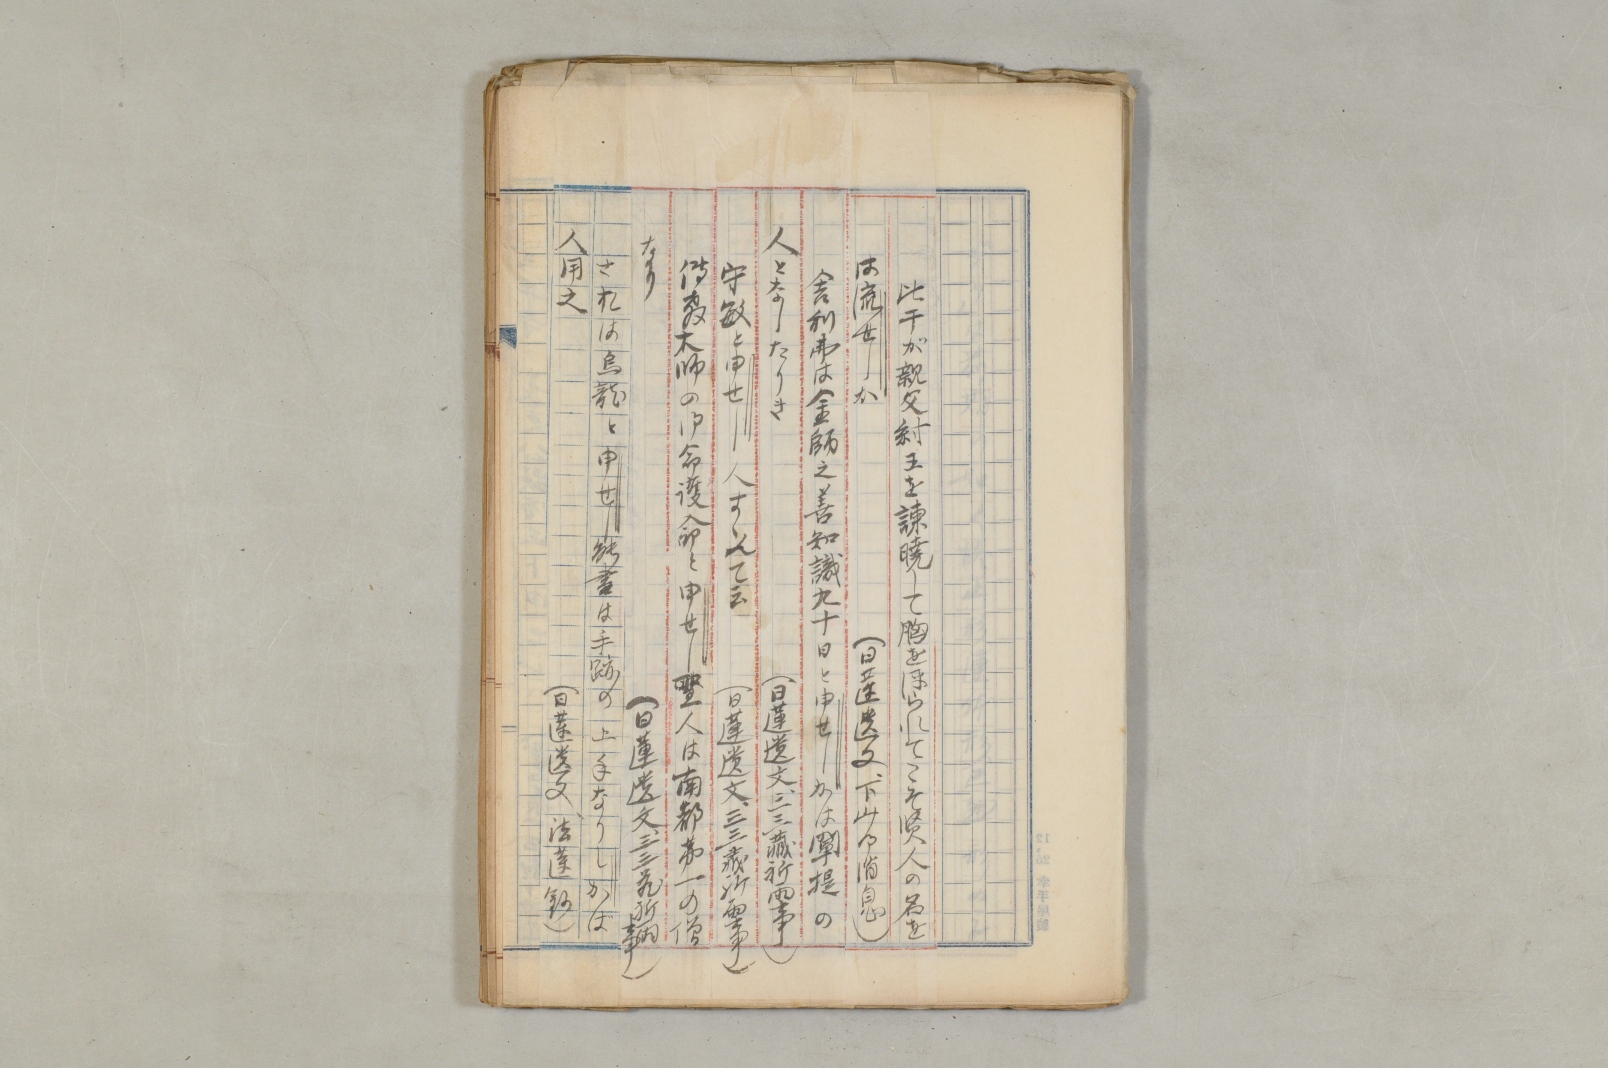 比干が親父紂王を諫曉して胸をほられてこそ賢人の名を
は流せしか
(日蓮遺文、下山御消息)
舎利弗は金師之善知識九十日と申せしかは闡提の
人となしたりき
(日蓮遺文、三三蔵祈雨事)
守敏と申せし人すゝんて云
(日蓮遺文、三三蔵祈雨事)
伝教大師の御師護命と申せし聖人は南都第一の僧
なり
(日蓮遺文、三三蔵祈雨事)
されは烏龍と申せし能書は手跡の上手なりしかは
人用之
(日蓮遺文、法蓮鈔)